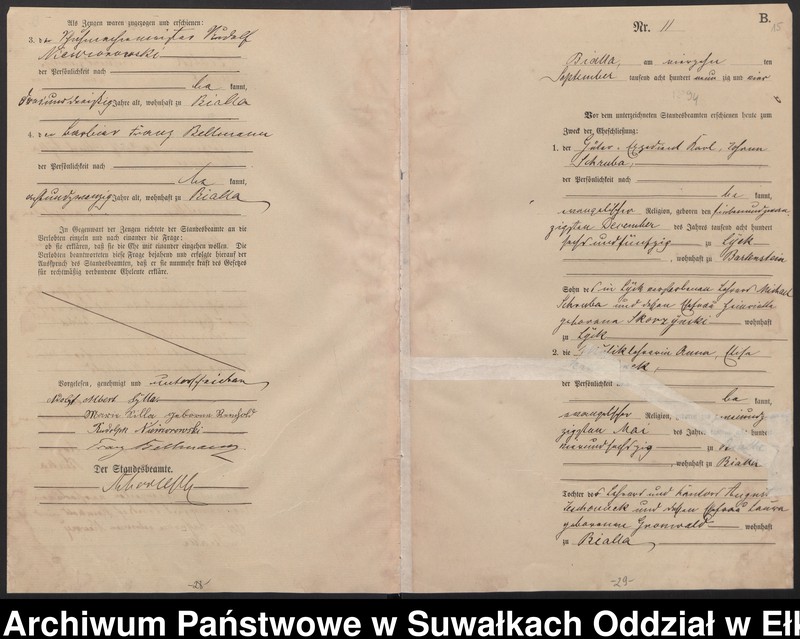 Als Zeugen waren zugezogen und erschienen:
3. der Schuhmachermeister Rudolf
Niewiorowski
der Persönlichkeit nach
be kannt,
Jahre alt, wohnhaft zu Bialla
4. der Barbier Franz Bellmann
der Persönlichkeit nach
be kannt,
Jahre alt, wohnhaft zu Bialla
In Gegenwart der Zeugen richtete der Standesbeamte an die
Verlobten einzeln und nach einander die Frage:
ob sie erklären, daß sie die Ehe mit einander eingehen wollen. Die
Verlobten beantworteten diese Frage bejahend und erfolgte hierauf der
Ausspruch des Standesbeamten, daß er sie nunmehr kraft des Gesetzes
für rechtmäßig verbundene Eheleute erkläre.
Vorgelesen, genehmigt und unterschrieben
Albert Sylla.
Marie Silla geborene
Rudolph Niewiorowski
Franz Bellmann
Der Standesbeamte.
-28-
B.
15
Nr. 11
Bialla, am vierzehn ten
September tausend acht hundert neun zig und vier
1894
Vor dem unterzeichneten Standesbeamten erschienen heute zum
Zweck der Eheschließung:
1. der Güter-Expedient Karl, Johann
Schruba,
der Persönlichkeit nach
be kannt,
evangelischer Religion, geboren den siebenundzwan
zigsten December des Jahres tausend acht hundert
sechsundfünfzig zu Lyck
, wohnhaft zu Bartenstein
Sohn des in Lyck verstorbenen Lehrers Michael
Schruba und dessen Ehefrau Henriette
geborene Skorzynski wohnhaft
zu Lyck
2. die Anna, Elise
der Persönlichkeit
be kannt,
evangelischer Religion,
zigsten Mai des Jahre hunde
vierundsechszig zu
, wohnhaft zu Bialla
Tochter des Lehrers und Kantors August
und dessen Ehefrau Laura
geborenen Gronwald wohnhaft
zu Bialla
-29-
Archiwum Państwowe w Suwałkach Oddział w Eł